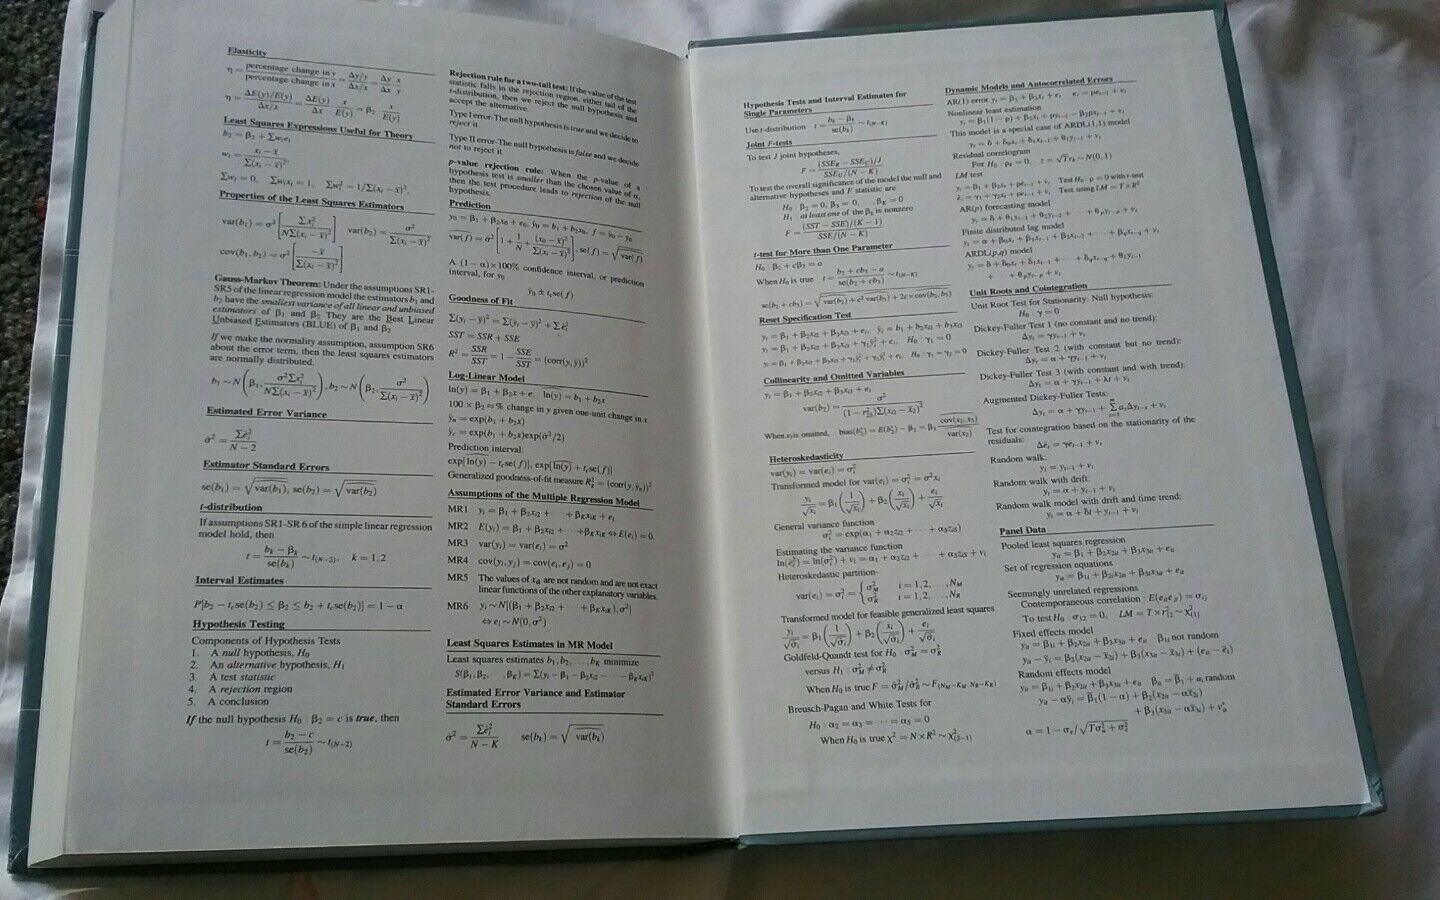 Elasticity
η = percentage change in y / percentage change in x = Δy/y / Δx/x = Δy/Δx · x/y
η = ΔE(y)/E(y) / Δx/x = ΔE(y)/Δx · x/E(y) = β₂ · x/E(y)
Least Squares Expressions Useful for Theory
b₂ = β₂ + Σwᵢeᵢ
wᵢ = (xᵢ − x̄) / Σ(xᵢ − x̄)²
Σwᵢ = 0, Σwᵢxᵢ = 1, Σwᵢ² = 1/Σ(xᵢ − x̄)²
Properties of the Least Squares Estimators
var(b₁) = σ²[Σxᵢ² / NΣ(xᵢ − x̄)²] var(b₂) = σ² / Σ(xᵢ − x̄)²
cov(b₁, b₂) = σ²[−x̄ / Σ(xᵢ − x̄)²]
Gauss-Markov Theorem: Under the assumptions SR1-
SR5 of the linear regression model the estimators b₁ and
b₂ have the smallest variance of all linear and unbiased
estimators of β₁ and β₂ They are the Best Linear
Unbiased Estimators (BLUE) of β₁ and β₂
If we make the normality assumption, assumption SR6
about the error term, then the least squares estimators
are normally distributed.
b₁ ~ N(β₁, σ²Σxᵢ² / NΣ(xᵢ − x̄)²), b₂ ~ N(β₂, σ² / Σ(xᵢ − x̄)²)
Estimated Error Variance
σ̂² = Σêᵢ² / N − 2
Estimator Standard Errors
se(b₁) = √var(b₁), se(b₂) = √var(b₂)
t-distribution
If assumptions SR1-SR6 of the simple linear regression
model hold, then
t = (bₖ − βₖ) / se(bₖ) ~ t(N−2), k = 1, 2
Interval Estimates
P[b₂ − t꜀se(b₂) ≤ β₂ ≤ b₂ + t꜀se(b₂)] = 1 − α
Hypothesis Testing
Components of Hypothesis Tests
1. A null hypothesis, H₀
2. An alternative hypothesis, H₁
3. A test statistic
4. A rejection region
5. A conclusion
If the null hypothesis H₀ : β₂ = c is true, then
t = (b₂ − c) / se(b₂) ~ t(N−2)
Rejection rule for a two-tail test: If the value of the test
statistic falls in the rejection region, either tail of the
t-distribution, then we reject the null hypothesis and
accept the alternative.
Type I error-The null hypothesis is true and we decide to
reject it
Type II error-The null hypothesis is false and we decide
not to reject it
p-value rejection rule: When the p-value of a
hypothesis test is smaller than the chosen value of α,
then the test procedure leads to rejection of the null
hypothesis.
Prediction
y₀ = β₁ + β₂x₀ + e₀, ŷ₀ = b₁ + b₂x₀, f = ŷ₀ − y₀
var(f) = σ̂²[1 + 1/N + (x₀ − x̄)² / Σ(xᵢ − x̄)²], se(f) = √var(f)
A (1 − α) × 100% confidence interval, or prediction
interval, for y₀
ŷ₀ ± t꜀se(f)
Goodness of Fit
Σ(yᵢ − ȳ)² = Σ(ŷᵢ − ȳ)² + Σêᵢ²
SST = SSR + SSE
R² = SSR/SST = 1 − SSE/SST = (corr(y, ŷ))²
Log-Linear Model
ln(y) = β₁ + β₂x + e, ln(y) = b₁ + b₂x
100 × β₂ ≈ % change in y given one-unit change in x
ŷₙ = exp(b₁ + b₂x)
ŷ꜀ = exp(b₁ + b₂x)exp(σ̂²/2)
Prediction interval:
exp[ln(y) − t꜀se(f)], exp[ln(y) + t꜀se(f)]
Generalized goodness-of-fit measure R²g = (corr(y, ŷₙ))²
Assumptions of the Multiple Regression Model
MR1 yᵢ = β₁ + β₂xᵢ₂ + ··· + βKxᵢK + eᵢ
MR2 E(yᵢ) = β₁ + β₂xᵢ₂ + ··· + βKxᵢK ⇔ E(eᵢ) = 0.
MR3 var(yᵢ) = var(eᵢ) = σ²
MR4 cov(yᵢ, yⱼ) = cov(eᵢ, eⱼ) = 0
MR5 The values of xᵢₖ are not random and are not exact
linear functions of the other explanatory variables.
MR6 yᵢ ~ N[(β₁ + β₂xᵢ₂ + ··· + βKxᵢK), σ²]
⇔ eᵢ ~ N(0, σ²)
Least Squares Estimates in MR Model
Least squares estimates b₁, b₂, ..., bK minimize
S(β₁, β₂, ..., βK) = Σ(yᵢ − β₁ − β₂xᵢ₂ − ··· − βKxᵢK)²
Estimated Error Variance and Estimator
Standard Errors
σ̂² = Σêᵢ² / N − K se(bₖ) = √var(bₖ)
Hypothesis Tests and Interval Estimates for
Single Parameters
Use t-distribution t = (bₖ − βₖ) / se(bₖ) ~ t(N−K)
Joint F-tests
To test J joint hypotheses,
F = (SSE_R − SSE_U)/J / SSE_U/(N − K)
To test the overall significance of the model the null and
alternative hypotheses and F statistic are
H₀ : β₂ = 0, β₃ = 0, ..., βK = 0
H₁ : at least one of the βₖ is nonzero
F = (SST − SSE)/(K − 1) / SSE/(N − K)
t-test for More than One Parameter
H₀ : β₂ + cβ₃ = a
When H₀ is true t = (b₂ + cb₃ − a) / se(b₂ + cb₃) ~ t(N−K)
se(b₂ + cb₃) = √var(b₂) + c² var(b₃) + 2c × cov(b₂, b₃)
Reset Specification Test
yᵢ = β₁ + β₂xᵢ₂ + β₃xᵢ₃ + eᵢ, ŷᵢ = b₁ + b₂xᵢ₂ + b₃xᵢ₃
yᵢ = β₁ + β₂xᵢ₂ + β₃xᵢ₃ + γ₁ŷᵢ² + eᵢ, H₀ : γ₁ = 0
yᵢ = β₁ + β₂xᵢ₂ + β₃xᵢ₃ + γ₁ŷᵢ² + γ₂ŷᵢ³ + eᵢ, H₀ : γ₁ = γ₂ = 0
Collinearity and Omitted Variables
yᵢ = β₁ + β₂xᵢ₂ + β₃xᵢ₃ + eᵢ
var(b₂) = σ² / (1 − r²₂₃)Σ(xᵢ₂ − x̄₂)²
When x₃ is omitted, bias(b₂*) = E(b₂*) − β₂ = β₃ cov(x₂, x₃) / var(x₂)
Heteroskedasticity
var(yᵢ) = var(eᵢ) = σᵢ²
Transformed model for var(eᵢ) = σᵢ² = σ²xᵢ
yᵢ/√xᵢ = β₁(1/√xᵢ) + β₂(xᵢ/√xᵢ) + eᵢ/√xᵢ
General variance function
σᵢ² = exp(α₁ + α₂zᵢ₂ + ··· + αSzᵢS)
Estimating the variance function
ln(êᵢ²) = ln(σᵢ²) + vᵢ = α₁ + α₂zᵢ₂ + ··· + αSzᵢS + vᵢ
Heteroskedastic partition-
var(eᵢ) = σᵢ² = { σ²M i = 1, 2, ..., N_M
σ²R i = 1, 2, ..., N_R
Transformed model for feasible generalized least squares
yᵢ/√σ̂ᵢ = β₁(1/√σ̂ᵢ) + β₂(xᵢ/√σ̂ᵢ) + eᵢ/√σ̂ᵢ
Goldfeld-Quandt test for H₀ : σ²M = σ²R
versus H₁ : σ²M ≠ σ²R
When H₀ is true F = σ̂²M/σ̂²R ~ F(N_M−K_M, N_R−K_R)
Breusch-Pagan and White Tests for
H₀ : α₂ = α₃ = ··· = αS = 0
When H₀ is true χ² = N × R² ~ χ²(S−1)
Dynamic Models and Autocorrelated Errors
AR(1) error yₜ = β₁ + β₂xₜ + eₜ, eₜ = ρeₜ₋₁ + vₜ
Nonlinear least estimation
yₜ = β₁(1 − ρ) + β₂xₜ + ρyₜ₋₁ − β₂ρxₜ₋₁ + vₜ
This model is a special case of ARDL(1,1) model
yₜ = δ + δ₀xₜ + δ₁xₜ₋₁ + θ₁yₜ₋₁ + vₜ
Residual correlogram
For H₀ : ρₖ = 0, z = √T rₖ ~ N(0, 1)
LM test
yₜ = β₁ + β₂xₜ + ρêₜ₋₁ + v̂ₜ Test H₀ : ρ = 0 with t-test
êₜ = γ₁ + γ₂xₜ + ρêₜ₋₁ + v̂ₜ Test using LM = T × R²
AR(p) forecasting model
yₜ = δ + θ₁yₜ₋₁ + θ₂yₜ₋₂ + ··· + θₚyₜ₋ₚ + vₜ
Finite distributed lag model
yₜ = α + β₀xₜ + β₁xₜ₋₁ + β₂xₜ₋₂ + ··· + βqxₜ₋q + vₜ
ARDL(p,q) model
yₜ = δ + δ₀xₜ + δ₁xₜ₋₁ + ··· + δqxₜ₋q + θ₁yₜ₋₁
+ ··· + θₚyₜ₋ₚ + vₜ
Unit Roots and Cointegration
Unit Root Test for Stationarity: Null hypothesis:
H₀ : γ = 0
Dickey-Fuller Test 1 (no constant and no trend):
Δyₜ = γyₜ₋₁ + vₜ
Dickey-Fuller Test 2 (with constant but no trend):
Δyₜ = α + γyₜ₋₁ + vₜ
Dickey-Fuller Test 3 (with constant and with trend):
Δyₜ = α + γyₜ₋₁ + λt + vₜ
Augmented Dickey-Fuller Tests:
Δyₜ = α + γyₜ₋₁ + Σ aₛΔyₜ₋ₛ + vₜ
Test for cointegration based on the stationarity of the
residuals: Δêₜ = γêₜ₋₁ + vₜ
Random walk:
yₜ = yₜ₋₁ + vₜ
Random walk with drift:
yₜ = α + yₜ₋₁ + vₜ
Random walk model with drift and time trend:
yₜ = α + δt + yₜ₋₁ + vₜ
Panel Data
Pooled least squares regression
yᵢₜ = β₁ + β₂x₂ᵢₜ + β₃x₃ᵢₜ + eᵢₜ
Set of regression equations
yᵢₜ = β₁ᵢ + β₂ᵢx₂ᵢₜ + β₃ᵢx₃ᵢₜ + eᵢₜ
Seemingly unrelated regressions
Contemporaneous correlation : E(eᵢₜeⱼₜ) = σᵢⱼ
To test H₀ : σ₁₂ = 0, LM = T × r²₁₂ ~ χ²(1)
Fixed effects model
yᵢₜ = β₁ᵢ + β₂x₂ᵢₜ + β₃x₃ᵢₜ + eᵢₜ β₁ᵢ not random
yᵢₜ − ȳᵢ = β₂(x₂ᵢₜ − x̄₂ᵢ) + β₃(x₃ᵢₜ − x̄₃ᵢ) + (eᵢₜ − ēᵢ)
Random effects model
yᵢₜ = β₁ᵢ + β₂x₂ᵢₜ + β₃x₃ᵢₜ + eᵢₜ β₁ᵢ = β̄₁ + uᵢ random
yᵢₜ − αȳᵢ = β̄₁(1 − α) + β₂(x₂ᵢₜ − αx̄₂ᵢ)
+ β₃(x₃ᵢₜ − αx̄₃ᵢ) + vᵢₜ*
α = 1 − σₑ/√Tσᵤ² + σₑ²